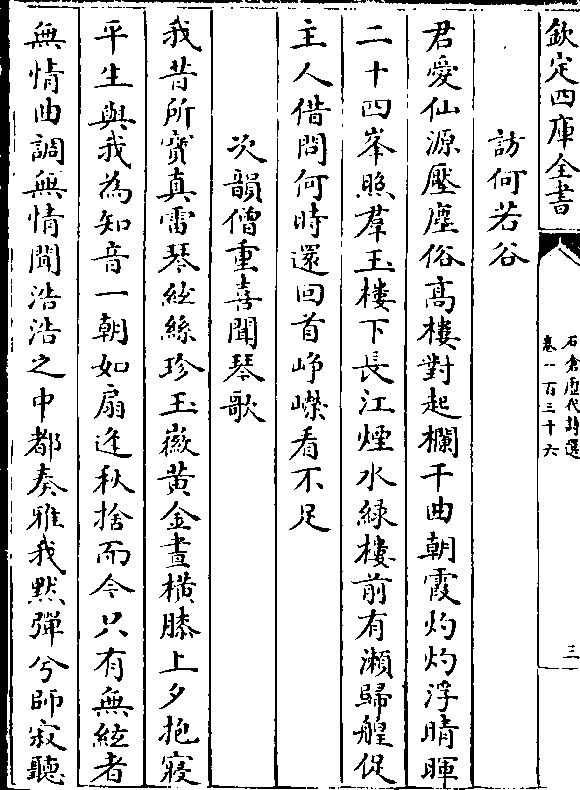 欽定四庫全書
石倉歷代詩選
卷一百三十六
三
訪何若谷
君愛仙源壓塵俗高樓對起欄干曲朝霞灼灼浮晴暉
二十四峯照羣玉樓下長江煙水緑樓前有瀨歸艎促
主人借問何時還回首崢嶸看不足
次韻僧重喜聞琴歌
我昔所寳真雷琴絃絲珍玉徽黄金晝橫膝上夕抱寝
平生與我為知音一朝如扇逢秋捨而今只有無絃者
無情曲調無情聞浩浩之中都奏雅我黙彈兮師寂聽